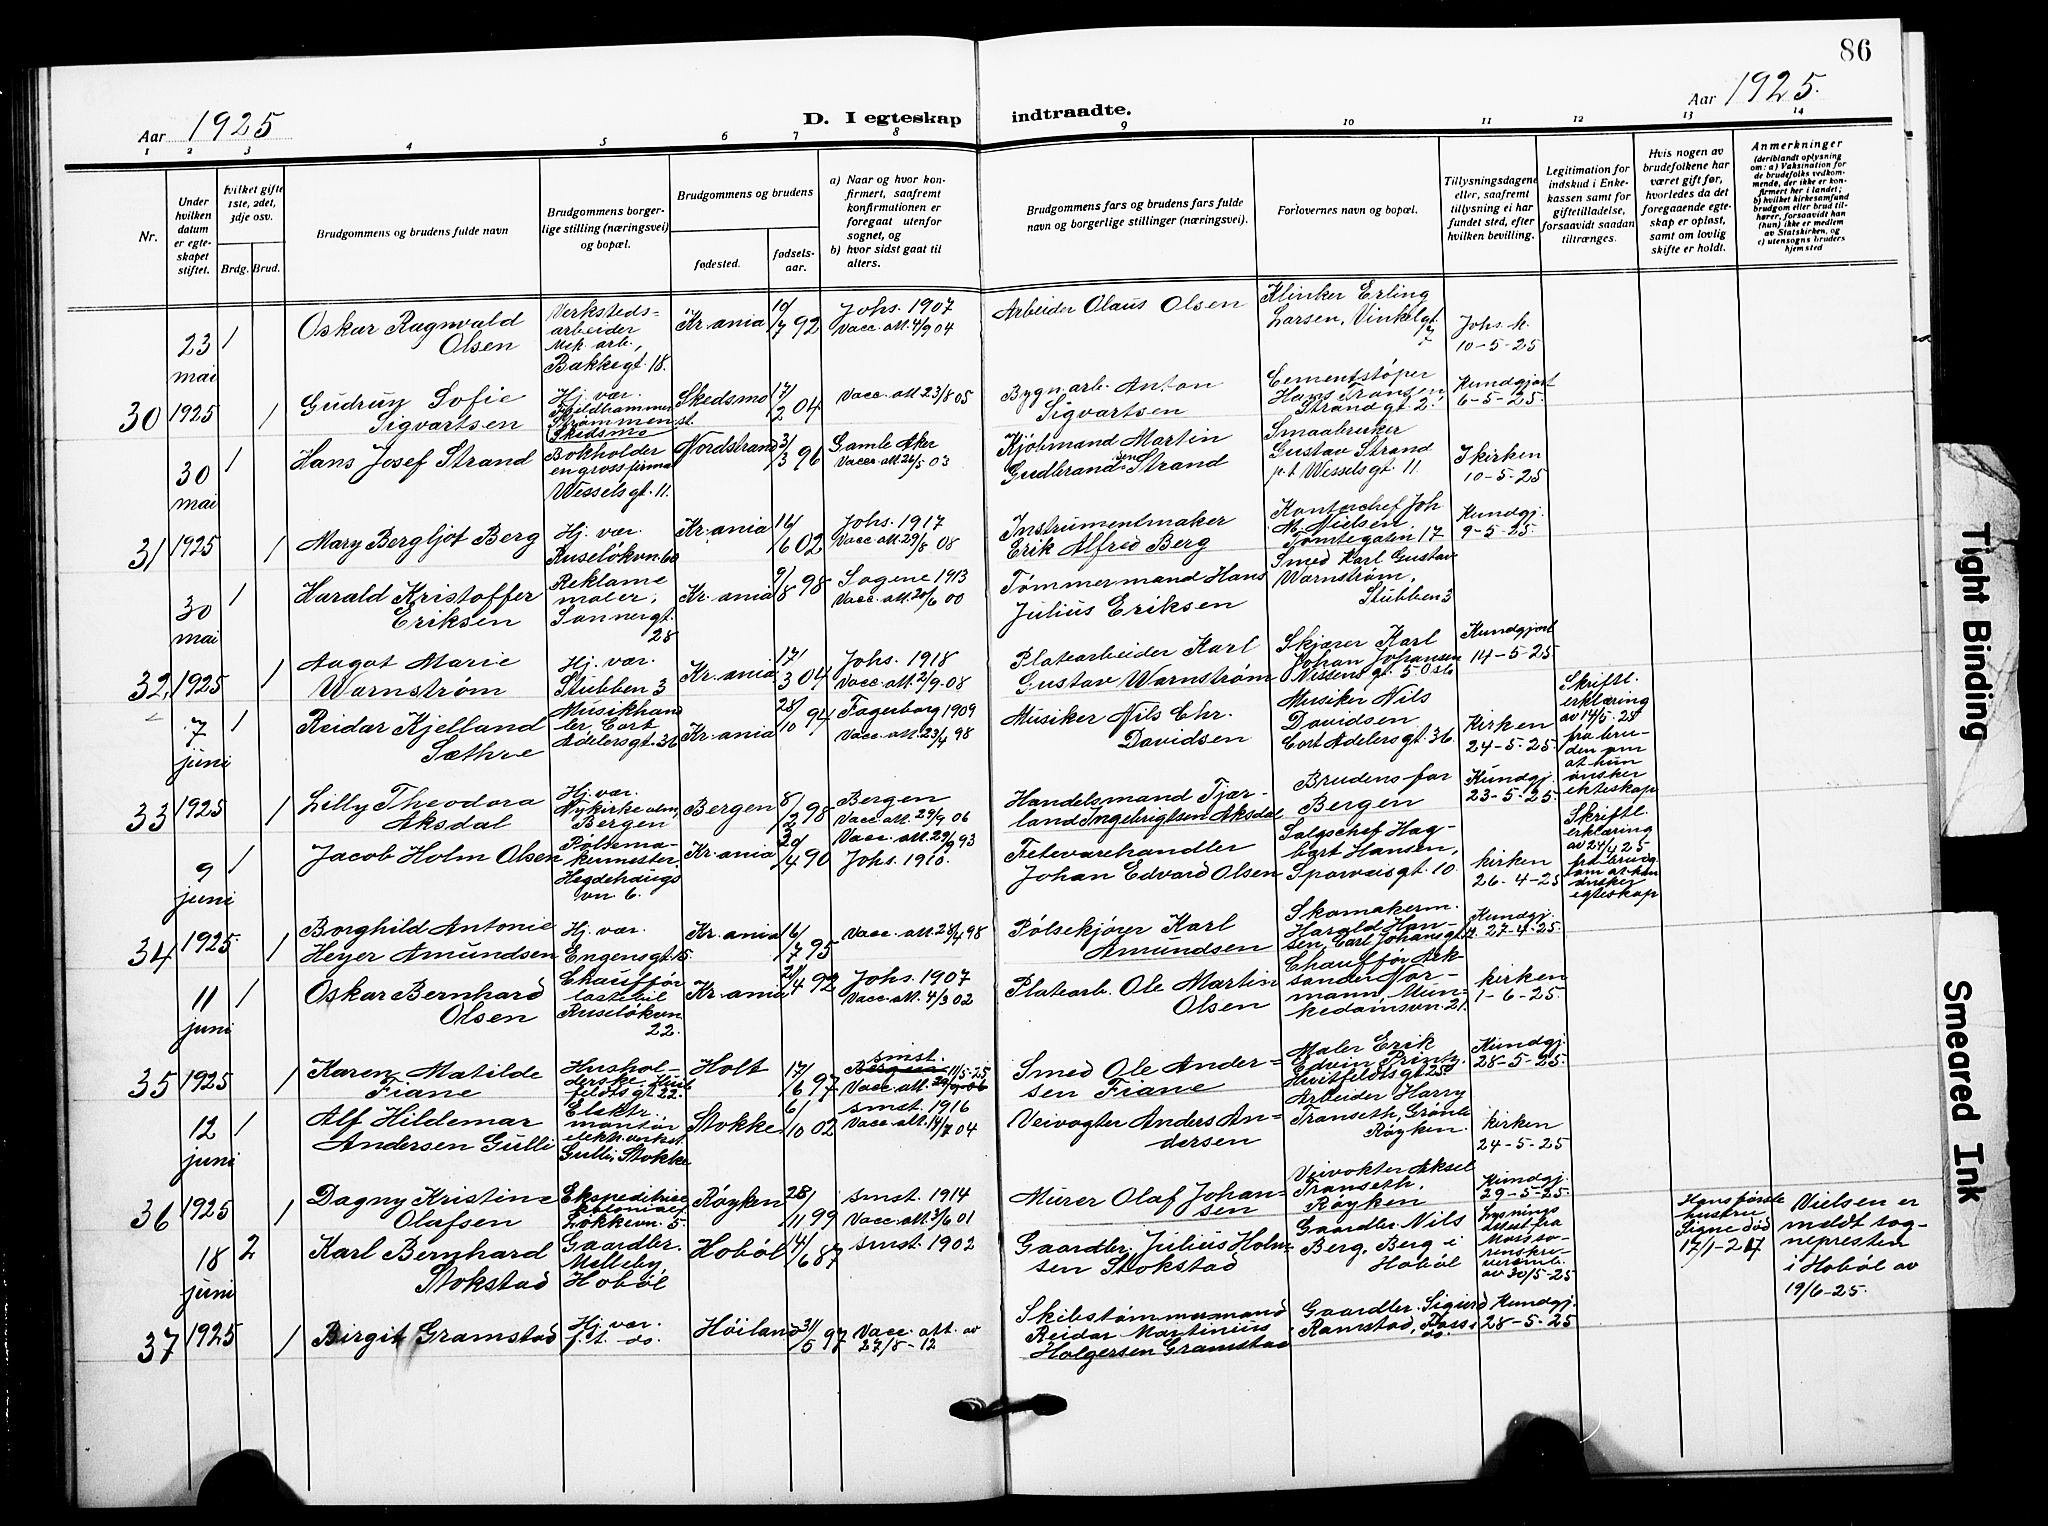 86
Aar 1925
D. I egteskap indtraadte.
Aar 1925.
1 2 3 4 5 6 7 8 9 10 11 12 13 14
Nr.
Under hvilken datum er egteskapet stiftet.
hvilket gifte 1ste, 2det, 3dje osv.
Brdg. Brud.
Brudgommens og brudens fulde navn
Brudgommens borgerlige stilling (næringsvei) og bopæl.
Brudgommens og brudens
fødested.
fødselsaar.
a) Naar og hvor konfirmert, saafremt konfirmationen er foregaat utenfor sognet, og
b) hvor sidst gaat til alters.
Brudgommens fars og brudens fars fulde navn og borgerlige stillinger (næringsvei).
Forlovernes navn og bopæl.
Tillysningsdagene eller, saafremt tillysning ei har fundet sted, efter hvilken bevilling.
Legitimation for indskud i Enkekassen samt for giftetilladelse, forsaavidt saadan tiltrænges.
Hvis nogen av brudefolkene har været gift før, hvorledes da det foregaaende egteskap er opløst, samt om lovlig skifte er holdt.
Anmerkninger
(deriblandt oplysning om: a) Vaksination for de brudefolks vedkommende, der ikke er konfirmert her i landet; b) hvilket kirkesamfund brudgom eller brud tilhører, forsaavidt han (hun) ikke er medlem av Statskirken, og c) utensogns bruders hjemsted
30
23 mai 1925
1
Oskar Ragnvald Olsen
Verkstedsarbeider Mek. arb., Bakkegt. 18.
Kr.ania
10/7 92
Johs. 1907
Vacc. att. 4/9 04
Arbeider Olaus Olsen
Klinker Erling Larsen, Vinkelgt. 7
Johs. k. 10-5-25
1
Gudrun Sofie Sigvartsen
Hj. vær. Strømmen st. Skedsmo
Skedsmo
17/2 04
Vacc. att 23/8 05
Bygn.arb. Anton Sigvartsen
Cementstøper Hans Fransen Strandgt. 2.
Kundgjort 6-5-25.
31
30 mai 1925
1
Hans Josef Strand
Bokholder engrossfirma Wesselsgt. 11.
Nordstrand
3/3 96
Gamle Aker
Vacc. att. 26/5 03
Kjøbmand Martin Gudbrandsen Strand
Smaabruker Gustav Strand p.t. Wesselsgt. 11
I kirken 10-5-25
1
Mary Bergljot Berg
Hj. vær. Ruseløkvn. 60
Kr.ania
16/6 02
Johs. 1917
Vacc. att. 29/8 08
Instrumentmaker Erik Alfred Berg
Kontorchef Joh M. Nielsen, Tomtegaten 17
Kundgj. 9-5-25.
32.
30 mai 1925
1
Harald Kristoffer Eriksen
Reklamemaler, Sannergt. 28
Kr.ania
9/8 98
Sagene 1913
Vacc. att. 20/6 00
Tømmermand Hans Julius Eriksen
Smed Karl Gustav Warnstrøm, Stubben 3
1
Aagot Marie Warnstrøm
Hj. vær. Stubben 3
Kr.ania
17/3 04
Johs. 1918
Vacc. att. 2/9-08
Platearbeider Karl Gustav Warnstrøm
Skjærer Karl Johan Johansen O. Nissens gt. 5 Oslo
Kundgjort 14-5-25
33
7 juni 1925
1
Reidar Kjelland Sæthre
Musikhandler Cort Adelersgt. 36
Kr.ania
28/10 94
Fagerborg 1909
Vacc. att. 23/4 98
Musiker Nils Chr. Davidsen
Musiker Nils Davidsen Cort Adelersgt. 36
Kirken 24-5-25.
Skriftl. erklæring av 14/5-25 fra bruden om at hun ønsker ekteskap
1
Lilly Theodora Aksdal
Hj. vær. Nykirkealm, Bergen
Bergen
8/2 98
Bergen
Vacc. att. 29/9 06
Handelsmand Fjærland Ingebrigtsen Aksdal
Brudens far Bergen
Kundgj. 23-5-25.
34
9 juni 1925.
1
Jacob Holm Olsen
Pølsemakermester, Hegdehaugsvn. 6.
Kr.ania
30/4 90
Vacc. att. 29/9 93
Johs. 1910.
Fetevarehandler Johan Edvard Olsen
Salgschef Hagbart Hansen, Sporveisgt. 10.
kirken 26-4-25
Skriftl. erklæring av 24/4 25 fra brudg. om at han ønsker egteskap
1
Borghild Antonie Heyer Amundsen
Hj. vær. Engensgt. 15.
Kr.ania
16/7 95
Vacc. att. 28/4 98
Pølsekjører Karl Amundsen
Skomakerm. Harald Hansen, Carl Johansgt. 12.
Kundgj. 27-4-25.
35
11 juni 1925
1
Oskar Bernhard Olsen
Chauffør lastebil Ruseløkvn 22.
Kr.ania
21/4 92
Johs. 1907
Vacc. att. 4/3 02
Platearb. Ole Martin Olsen
Chauffør Aleksander Normann, Munkedamsvn. 21.
kirken 1-6-25.
1
Karen Matilde Fiane
Husholderske Huitfeldtsgt. 22.
Holt
17/6 97
smst.
Smed Ole Andersen Fiane
Maler Erik Edvin Printz. Huitfeldtsgt 25
Kundgj. 28-5-25.
36
12 juni 1925
1
Alf Hildemar Andersen Gulli
Elektr. montør elektr.verket Gulli, Stokke
Stokke
6/10 02
smst. 1916
Vacc. att. 14/7 04
Veivogter Anders Andersen
Arbeider Harry Transeth, Grønli Røyken.
kirken 24-5-25
1
Dagny Kristine Olafsen
Ekspeditrice kolonialf. Løkkevn. 5
Røyken
28/11 99
smst. 1914
Vacc. att. 3/6 01
Murer Olaf Johansen
Veivokter Aksel Transeth, Røyken
Kundgj. 29-5-25.
37
18 juni 1925
2
Karl Bernhard Stokstad
Gaardbr. Melleby, Hobøl
Hobøl
14/6 87
smst. 1902
Gaardbr. Julius Holmsen Stokstad
Gaardbr. Nils Berg, Berg i Hobøl
Lysningsattest fra Moss sorenskriveremb. av 30/5-25
Hans første hustru Signe død 17/1-24
Vielsen er meldt sognepresten i Hobøl av 19/6-25.
1
Birgit Gramstad
Hj. vær. f.t. do.
Høiland
31/5 97
Vacc. att. av 27/8-12
Skibstømmermand Reidar Martinius Holgersen Gramstad
Gaardbr. Sigurd Ramstad, do.
Kundgj. 28-5-25
Tight Binding
Smeared Ink